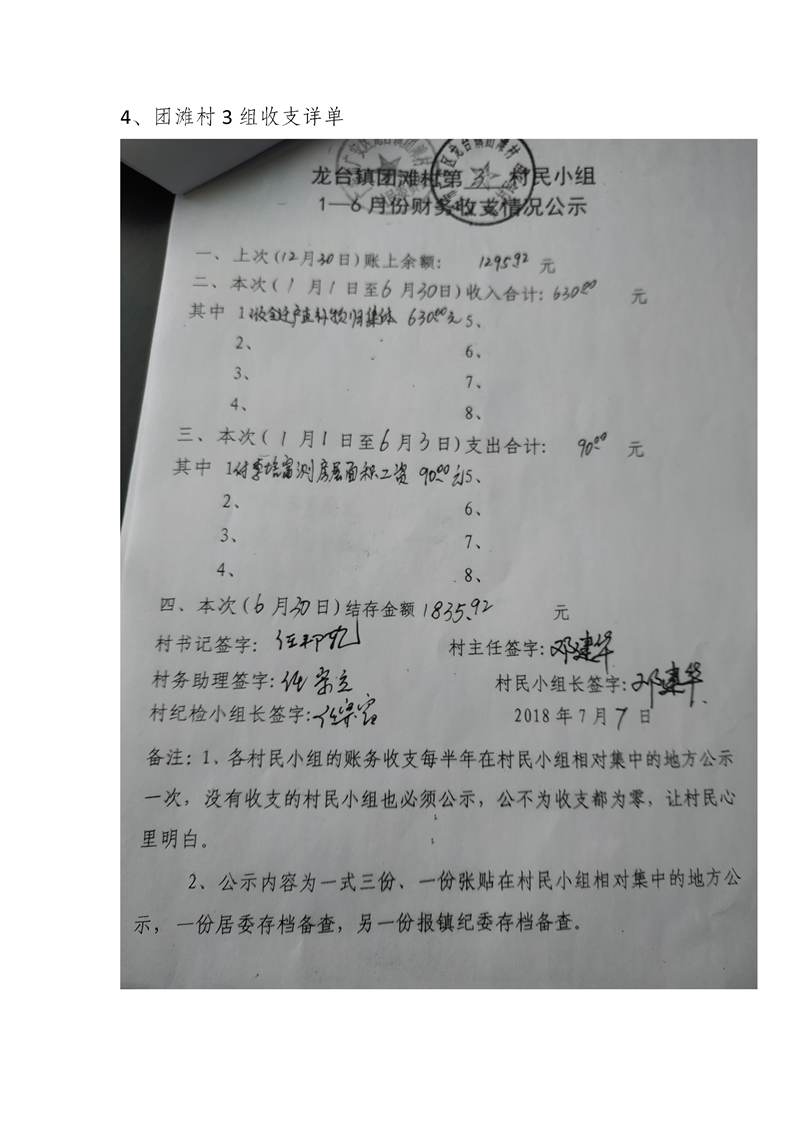 4、团滩村 3 组收支详单
龙台镇团滩村第 3 村民小组
1—6月份财务收支情况公示
一、上次(12月30日)账上余额: 1295.92 元
二、本次( 1 月1 日至6 月30日)收入合计: 630.00 元
其中 1、收 630.00元 5、
2、 6、
3、 7、
4、 8、
三、本次( 1 月1 日至6 月3 日)支出合计: 90.00 元
其中 1、付李培富测房屋面积工资 90.00元 5、
2、 6、
3、 7、
4、 8、
四、本次(6 月30日)结存金额 1835.92 元
村书记签字: 村主任签字:邓建华
村务助理签字: 任宗立 村民小组长签字:邓建华
村纪检小组长签字: 2018 年 7 月 7 日
备注:1、各村民小组的账务收支每半年在村民小组相对集中的地方公示
一次,没有收支的村民小组也必须公示,公不为收支都为零,让村民心
里明白。
2、公示内容为一式三份、一份张贴在村民小组相对集中的地方公
示,一份居委存档备查,另一份报镇纪委存档备查。